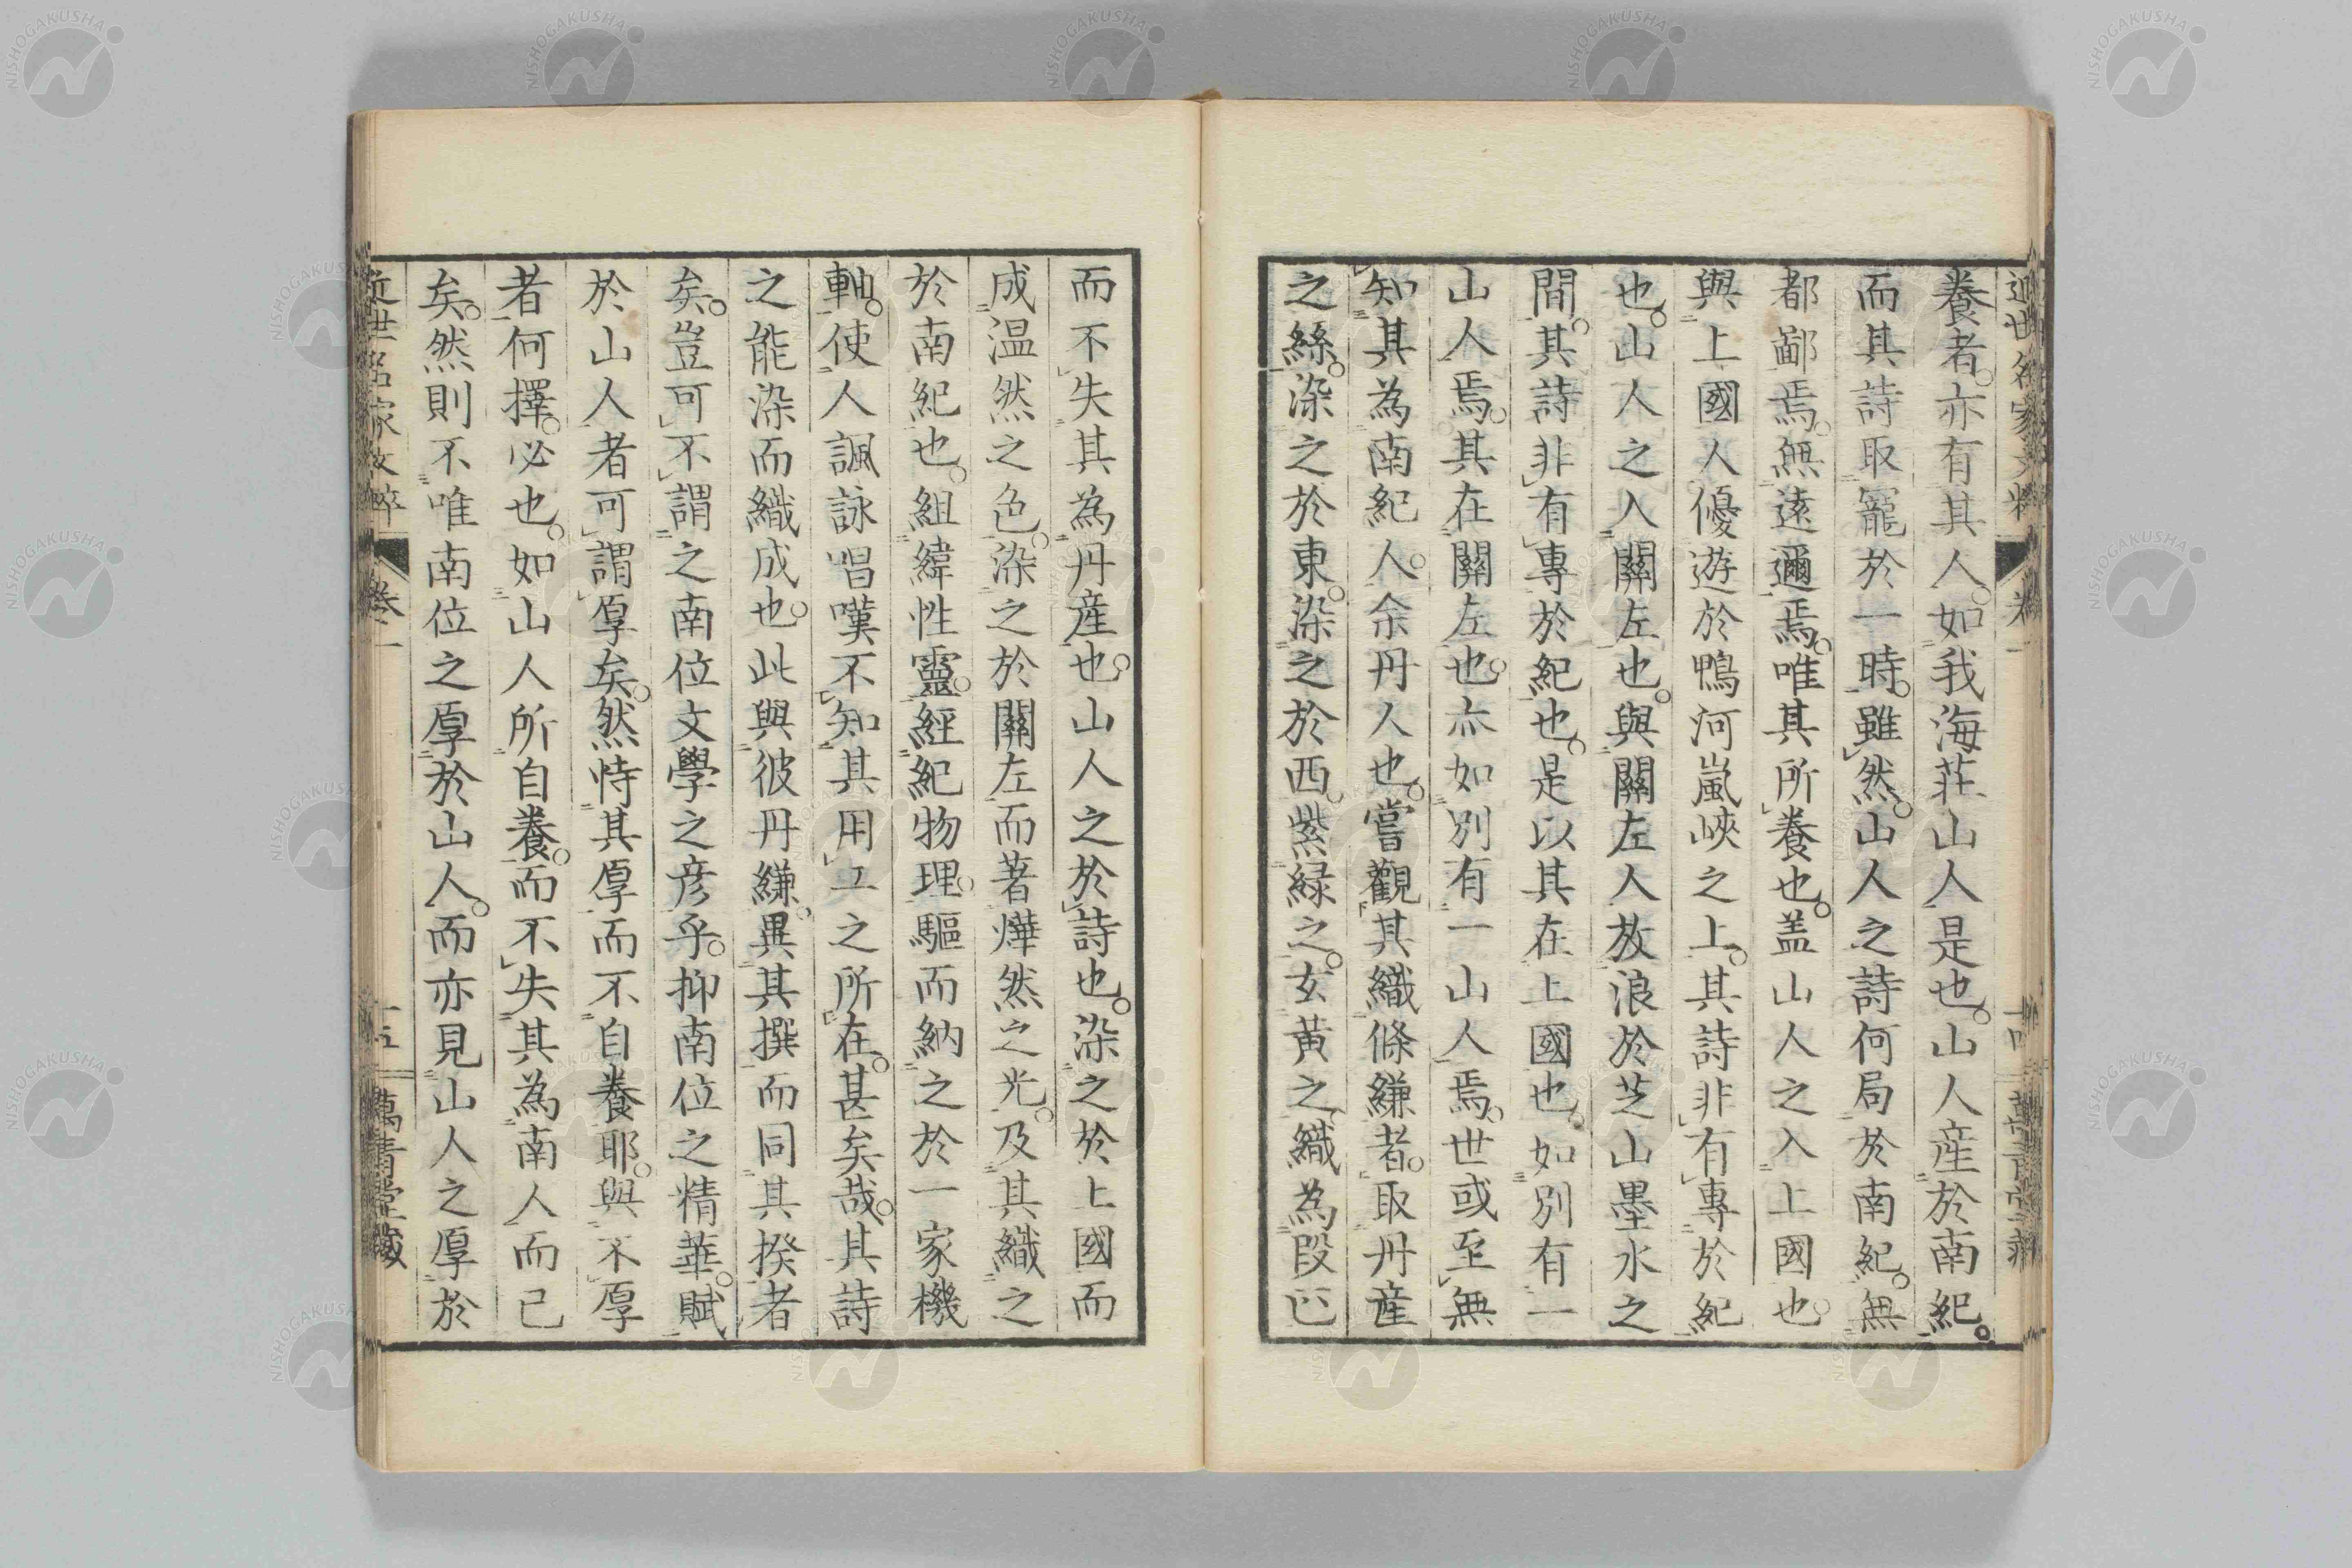 養者。亦有其人。如我海荘山人是也。山人産於南紀。
而其詩取寵於一時。雖然。山人之詩何局於南紀。無
都鄙焉。無遠邇焉。唯其所養也。盖山人之入上國也。
與上國人優遊於鴨河嵐峽之上。其詩非有專於紀
也。山人之入關左也。與關左人放浪於芝山墨水之
間。其詩非有專於紀也。是以其在上國也。如別有一
山人焉。其在關左也。亦如別有一山人焉。世或至無
知其為南紀人。余丹人也。嘗觀其織絛縑者。取丹産
之絲。染之於東。染之於西。紫緑之。玄黃之。織為段匹
而不失其為丹産也。山人之於詩也。染之於上國而
成温然之色。染之於關左而著燁然之光。及其織之
於南紀也。組緯性靈。經紀物理。驅而納之於一家機
軸。使人諷詠唱嘆不知其用工之所在。甚矣哉。其詩
之能染而織成也。此與彼丹縑。異其撰而同其揆者
矣。豈可不謂之南位文學之彦乎。抑南位之精華。賦
於山人者可謂厚矣。然恃其厚而不自養耶。與不厚
者何擇。必也。如山人所自養。而不失其為南人而已
矣。然則不唯南位之厚於山人。而亦見山人之厚於
近世名家文粹 卷一 十四 萬青堂藏
近世名家文粹 卷一 十五 萬青堂藏
NISHOGAKUSHA